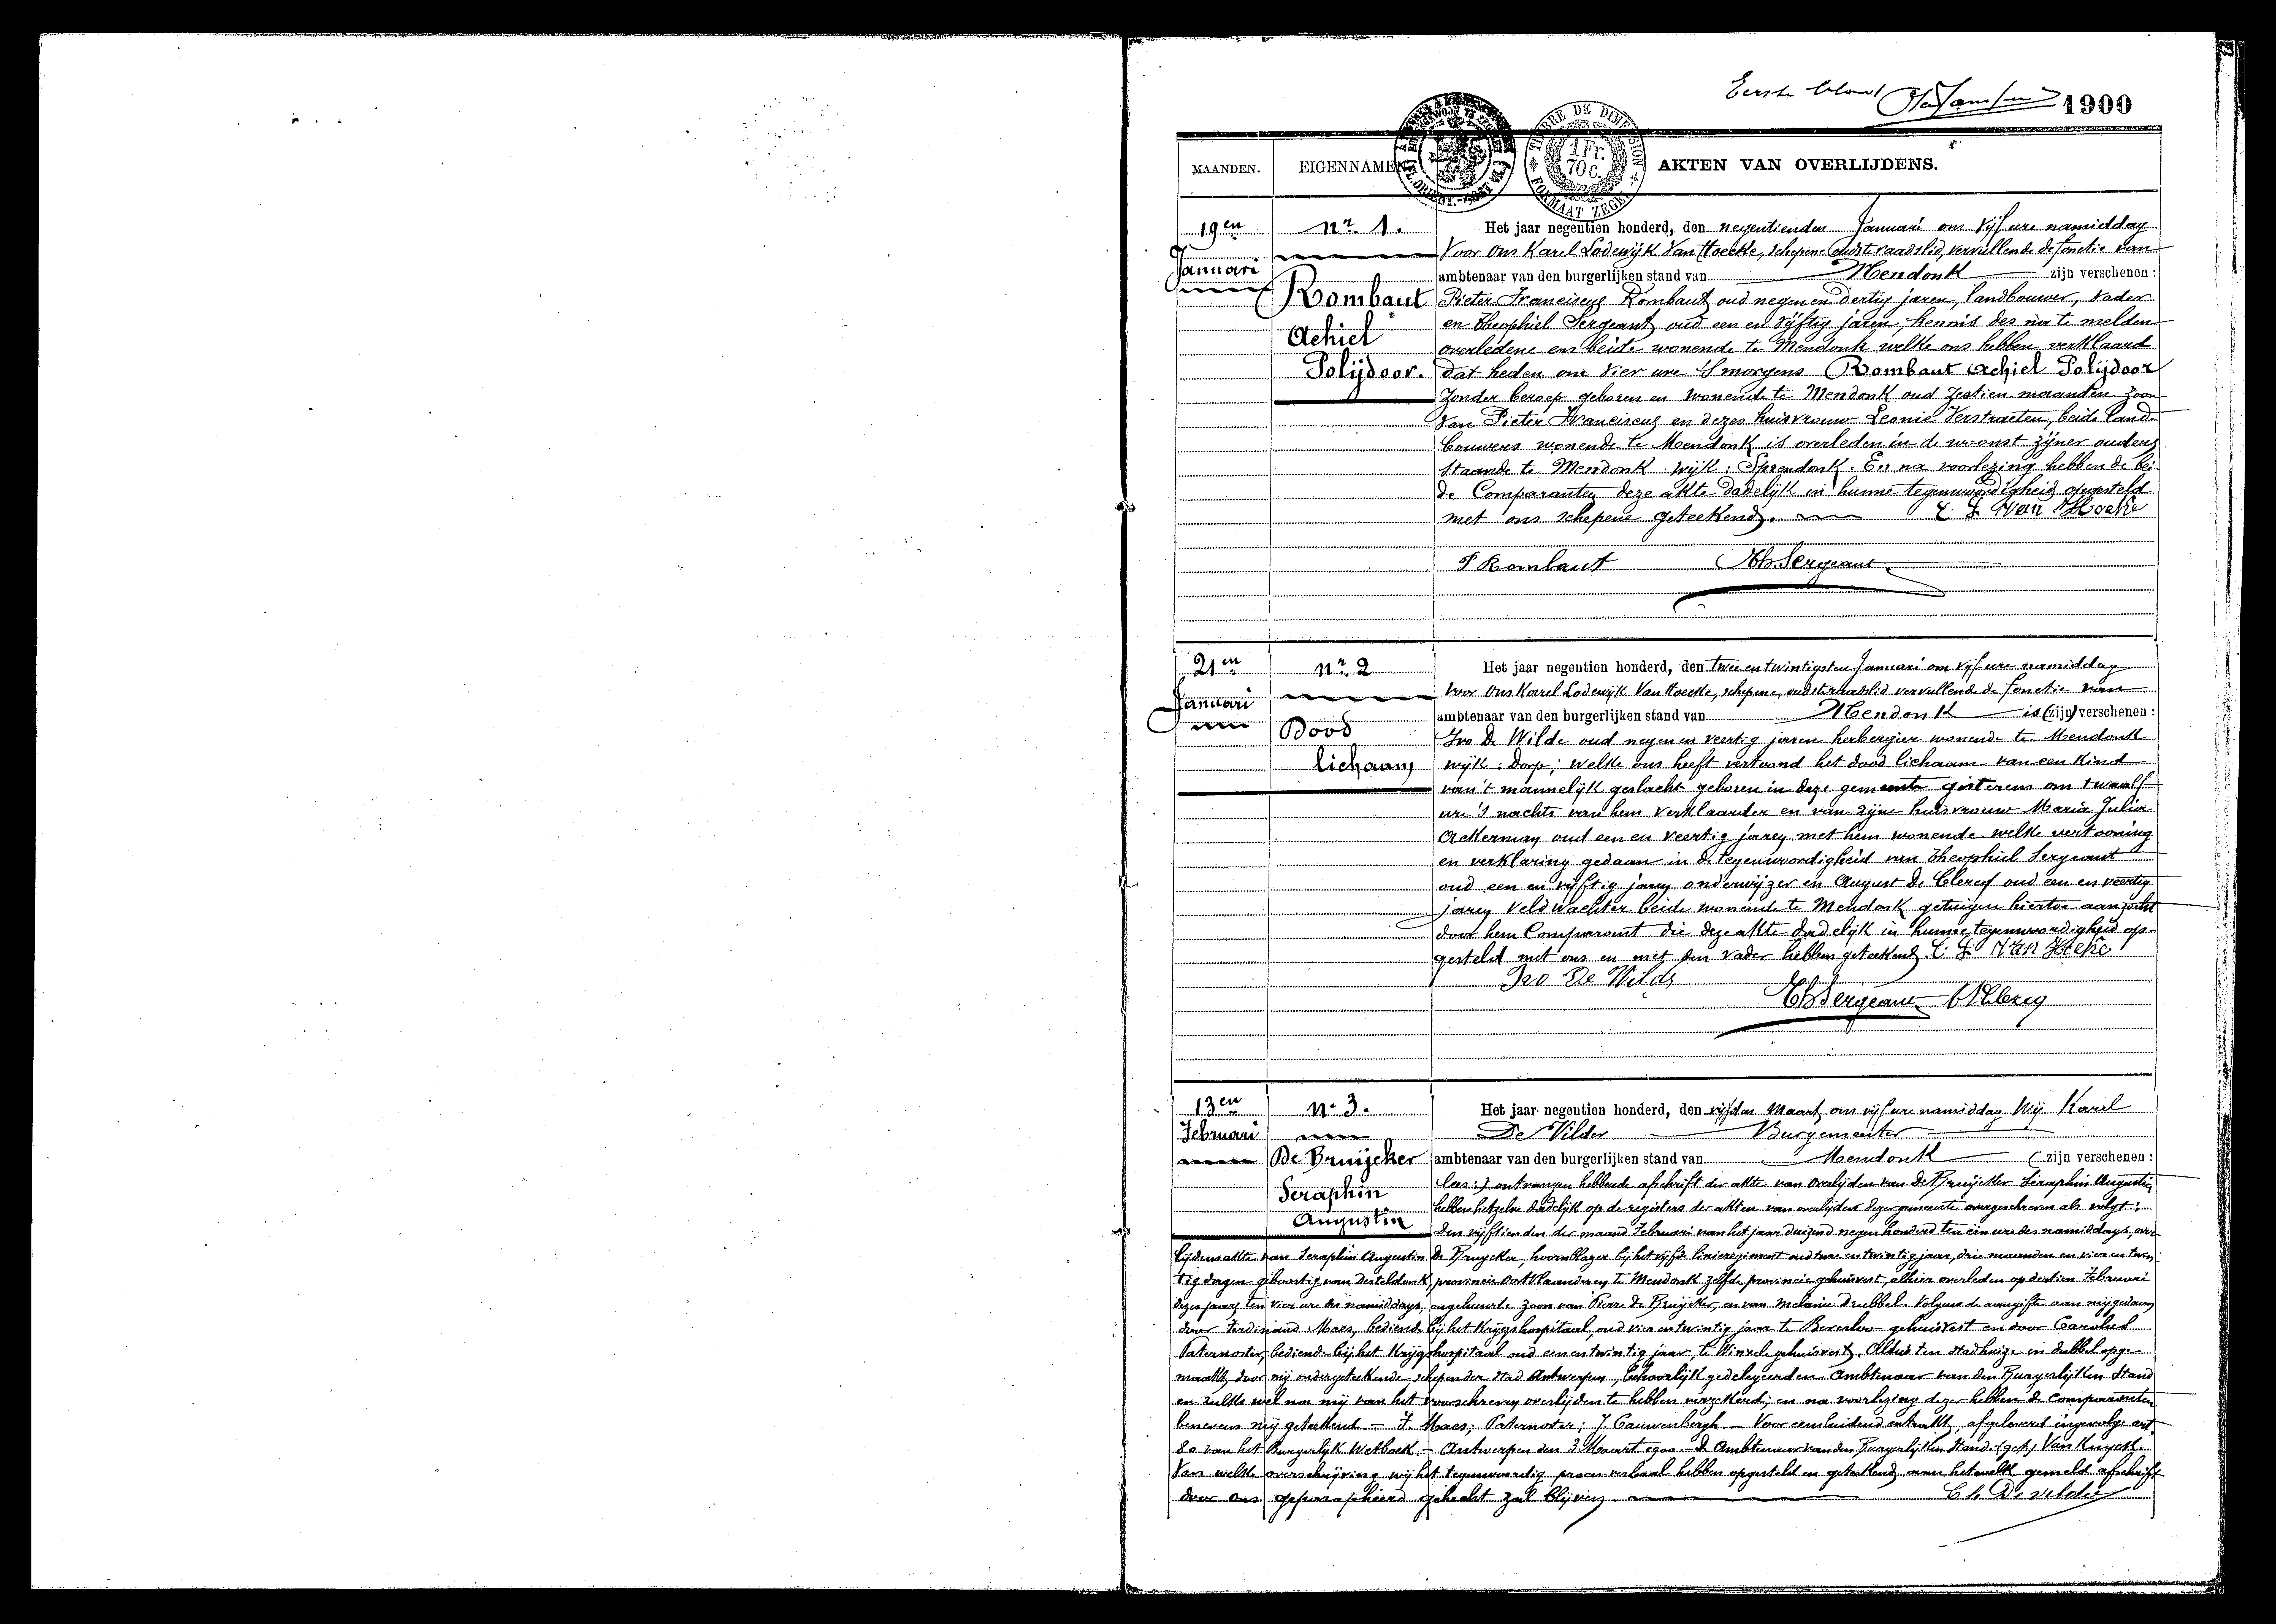 Eerste blad
1900
TIMBRE DE DIMENSION
1 Fr. 70 C.
FORMAAT ZEGEL
MAANDEN. EIGENNAMEN AKTEN VAN OVERLIJDENS.
19en Januari
nr. 1.
Rombaut
Achiel
Polijdoor.
Het jaar negentien honderd, den negentienden Januari om vijf ure namiddag
Voor Ons Karel Lodewijk Van Hoecke, schepene oudste raadslid, vervullende de fonctie van
ambtenaar van den burgerlijken stand van Mendonk zijn verschenen:
Pieter Franciscus Rombaut oud negen en dertig jaren, landbouwer, vader
en Theophiel Sergeant oud een en vijftig jaren, kennis des na te melden
overledene en beide wonende te Mendonk welke ons hebben verklaard
dat heden om vier ure 's morgens Rombaut Achiel Polijdoor
zonder beroep geboren en wonende te Mendonk oud zestien maanden zoon
van Pieter Franciscus en dezes huisvrouw Leonie Verstraeten, beide land-
bouwers wonende te Mendonk is overleden in de woonst zijner ouders
staande te Mendonk wijk: Spendonk. En na voorlezing hebben de bei-
de Comparanten deze akte dadelijk in hunne tegenwoordigheid opgesteld
met ons schepene geteekend. C. L. Van Hoecke
P Rombaut Th. Sergeant
21en Januari
nr. 2
Dood
lichaam
Het jaar negentien honderd, den twee en twintigsten Januari om vijf ure namiddag
Voor Ons Karel Lodewijk Van Hoecke, schepene, oudste raadslid vervullende de fonctie van
ambtenaar van den burgerlijken stand van Mendonk is (zijn) verschenen:
Ivo De Wilde oud negen en veertig jaren herbergier wonende te Mendonk
wijk: Dorp; welke ons heeft vertoond het dood lichaam van een kind
van 't mannelijk geslacht geboren in deze gemeente gisteren om twaalf
ure 's nachts van hem verklaarder en van zijne huisvrouw Maria Julia
Ackerman oud een en veertig jaren met hem wonende welke vertooning
en verklaring gedaan in de tegenwoordigheid van Theophiel Sergeant
oud een en vijftig jaren onderwijzer en August De Clercq oud een en veertig
jaren veldwachter beide wonende te Mendonk getuigen hiertoe aanzocht
door hem Comparant die deze akte dadelijk in hunne tegenwoordigheid op-
gesteld met ons en met den vader hebben geteekend. C. L. Van Hoecke
Ivo De Wilde
Th Sergeant
13en Februari
n° 3.
De Bruijcker
Seraphin
Augustin
Het jaar negentien honderd, den vijfden Maart om vijf ure namiddag Wij Karel
De Vilder Burgemeester
ambtenaar van den burgerlijken stand van Mendonk (zijn verschenen:
lees:) ontvangen hebbende afschrift der akte van overlijden van De Bruijcker Seraphin Augustin
hebben hetzelve dadelijk op de registers der akten van overlijden dezer gemeente overgeschreven als volgt:
Den vijftienden der maand Februari van het jaar duizend negen honderd ten één ure des namiddags, over-
lijdensakte van Seraphin Augustin De Bruycker, hoornblazer bij het vijfde linieregiment oud twee en twintig jaar, drie maanden en vier en twin-
tig dagen geboortig van Desteldonk, provincie Oostvlaanderen te Mendonk zelfde provincie gehuisvest, alhier overleden op dertien Februari
dezes jaars ten vier ure des namiddags, ongehuwde zoon van Pierre De Bruijcker, en van Melanie Drubbel. Volgens de aangifte aan mij gedaan
door Ferdinand Maes, bediende bij het Krijgshospitaal, oud vier en twintig jaar te Beverloo gehuisvest en door Carolus
Paternoster, bediende bij het Krijgshospitaal oud een en twintig jaar, te Winxele gehuisvest. Aldus ten stadhuize in dubbel opge-
maakt door mij ondergeteekende schepen der stad Antwerpen, behoorlijk gedelegeerden Ambtenaar van den Burgerlijken Stand
en zulks wel na mij van het voorschreven overlijden te hebben verzekerd; en na voorlezing dezer hebben de Comparanten
benevens mij geteekend. — F. Maes; Paternoster; J. Cauwenbergh. — Voor eensluidend extrakt, afgeleverd ingevolge art.
80 van het Burgerlijk Wetboek. — Antwerpen den 3 Maart 1900. — De Ambtenaar van den Burgerlijken Stand. (get.)
Van welke overschrijving wij het tegenwoordig proces verbaal hebben opgesteld en geteekend aan hetwelk gemeld afschrift
door ons geparapheerd gehecht zal blijven. Ch. De Vilder